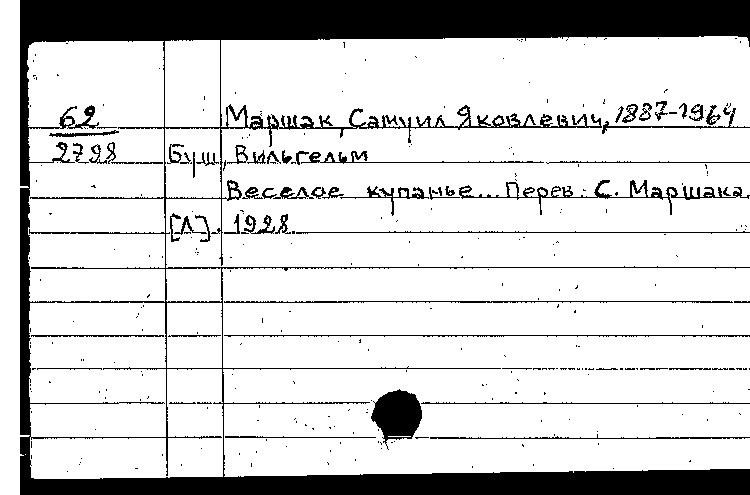 62 Маршак, Самуил Яковлевич, 1887-1964
2798 Буш, Вильгельм
Веселое купанье... Перев. С. Маршака.
[Л]. 1928.